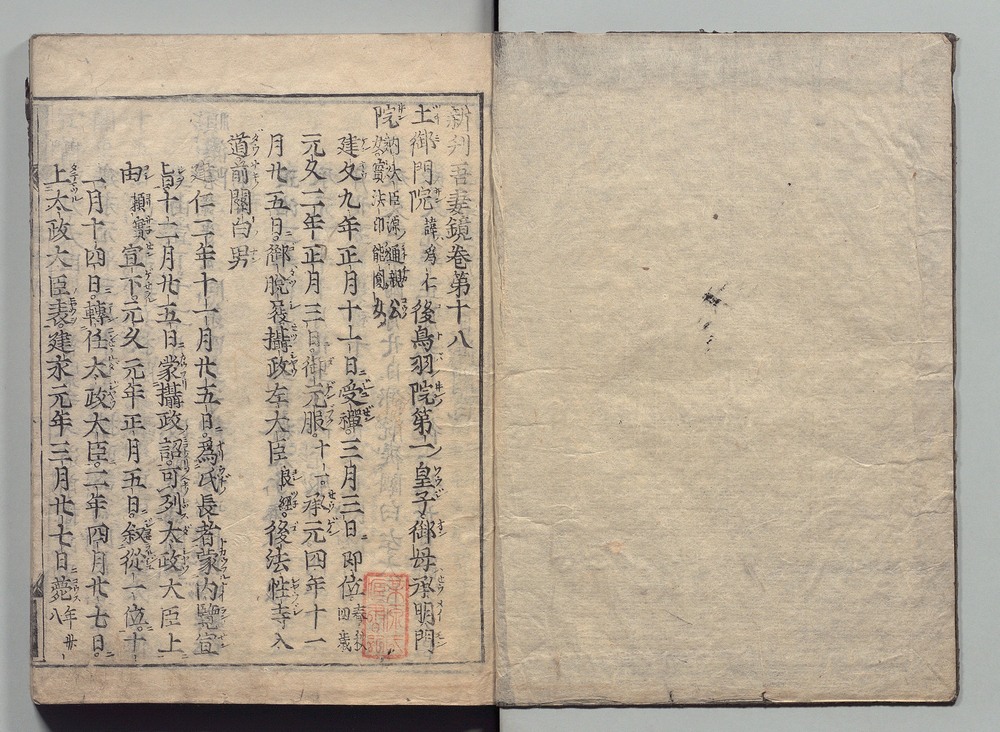 新刋吾妻鏡卷第十八
土御門院 諱爲仁 後鳥羽院第一皇子御母承明門
院 内大臣源通親公女實法印能圓女
建久九年正月十一日受禪三月三日即位 春秋四歳
元久二年正月三日御元服 十一 承元四年十一
月廿五日御脫屣攝政左大臣 良經 後法性寺入
道前關白男
建仁二年十一月廿五日爲氏長者蒙内覽宣
旨十二月廿五日蒙攝政詔可列太政大臣上
由 頼實 宣下元久元年正月五日叙從一位十
一月十四日轉任太政大臣二年四月廿七日
上太政大臣表建永元年三月廿七日薨 年卅八